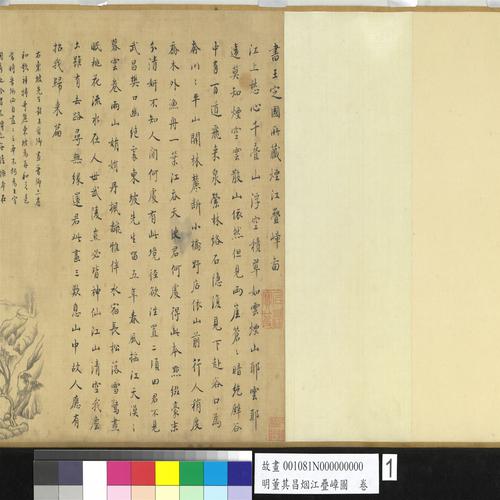 書王定國所藏煙江疊嶂圖
江上愁心千疊山浮空積翠如雲煙山耶雲耶
遠莫知煙空雲散山依然但見兩崖蒼蒼暗絕壑谷
中有百道飛來泉縈林絡石隱復見下赴谷口為
奔川川平山開林麓斷小橋野店依山前行人稍度
喬木外漁舟一葉江吞天使君何處得此本點綴豪末
分清妍不知人間何處有此境徑欲往置二頃田君不見
武昌樊口幽絕處東坡先生留五年春風搖江天漠漠
暮雲卷雨山娟娟丹楓翻鴉伴水宿長松落雪驚晝
眠桃花流水在人世武陵豈必皆神仙江山清空我塵
土雖有去路尋無緣還君此畫三歎息山中故人應有
招我歸來篇
右東坡先生
故畫 001081N000000000
明董其昌烟江疊嶂圖 卷
1